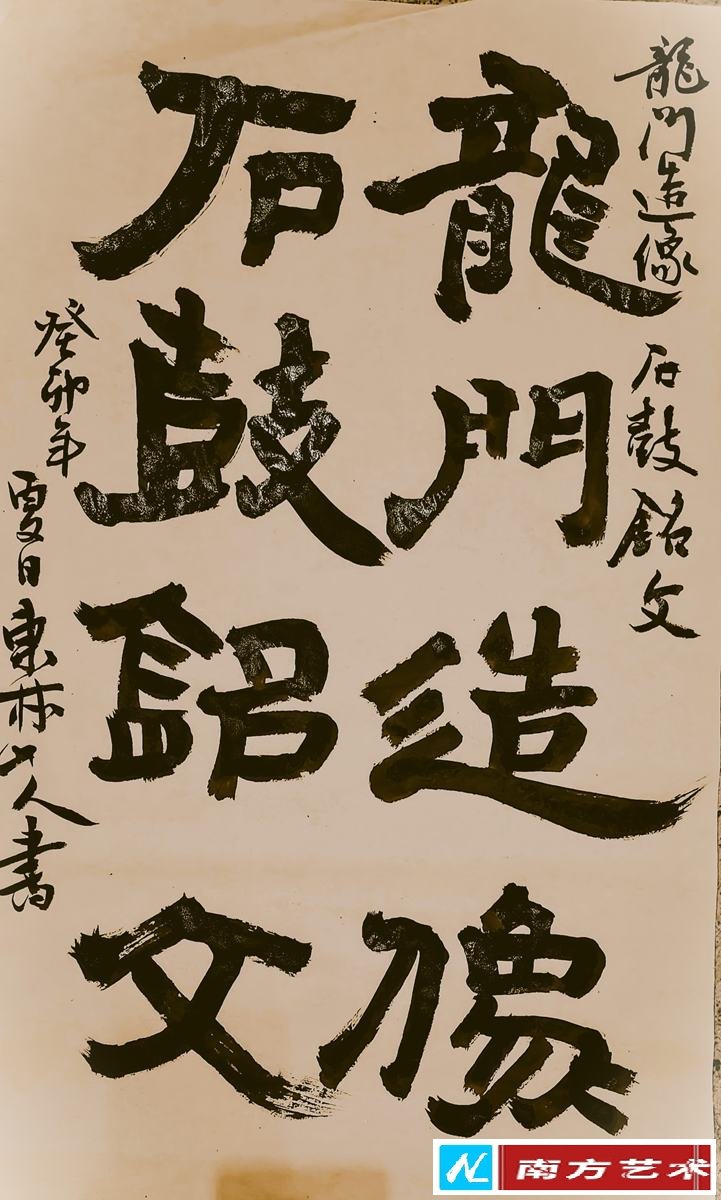 龍門造像 石鼓銘文
龍門造像
石鼓銘文
癸卯年
夏日東林山人書
南方艺术